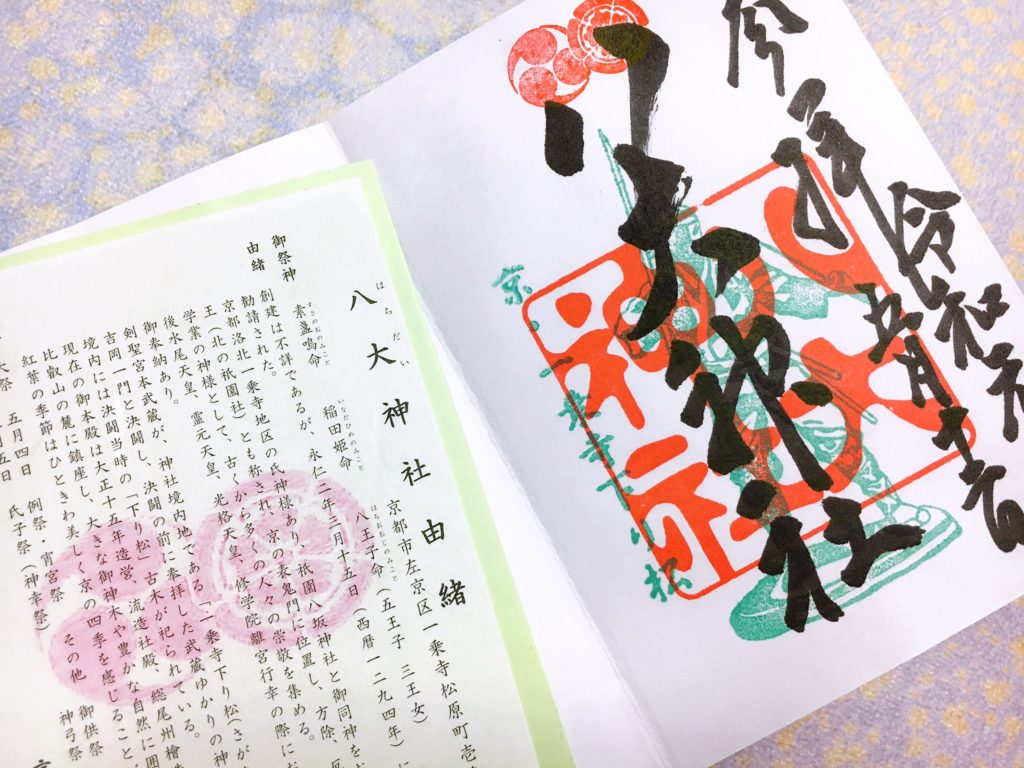 奉拝
令和元
五月十
八大神社
京 一乗寺下り松
八大神社
京都市左京区一乗寺松原町壱
はちだい
八大神社由緒
すさのおのみこと いなだひめのみこと はちおおじのみこと
御祭神 素盞嗚命 稲田姫命 八王子命(五王子 三王女)
由緒 創建は不詳であるが、永仁二年三月十五日(西暦一二九四年)に
勧請された。
京都洛北一乗寺地区の氏神様あり、祇園八坂神社と御同神をお
王(北の祇園社)とも称され、京の表鬼門に位置し、方除、厄
学業の神様として、古くから多くの人々の崇敬を集める。
後水尾天皇、霊元天皇、光格天皇、修学院離宮行幸の際にお
御奉納あり。
剣聖宮本武蔵が、神社境内地である「一乗寺下り松(さが
吉岡一門と決闘し、決闘の前に奉拝した武蔵ゆかりの神
境内には決闘当時の「下り松」古木が祀られている。
現在の御本殿は大正十五年造営、流造社殿、総尾州檜
比叡山の麓に鎮座し、大きな御神木や豊かな自然に囲
紅葉の季節はひときわ美しく京の四季を感じること
大祭 五月四日 例祭・宵宮祭 その他 御供祭
月五日 氏子祭(神幸祭) 神弓祭